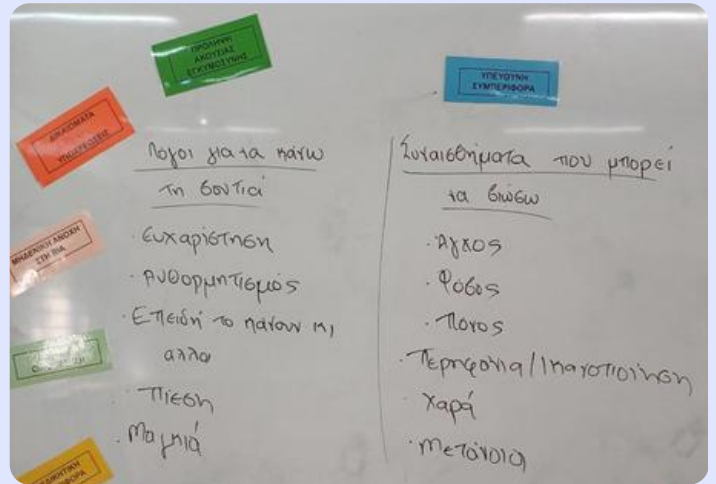 ΠΡΟΛΗΨΗ
ΑΚΟΥΣΙΑΣ
ΕΓΚΥΜΟΣΥΝΗΣ
ΥΠΕΥΘΥΝΗ
ΣΥΜΠΕΡΙΦΟΡΑ
ΔΙΚΑΙΩΜΑΤΑ
ΥΠΟΧΡΕΩΣΕΙΣ
ΜΗΔΕΝΙΚΗ ΑΝΟΧΗ
ΣΤΗ ΒΙΑ
Λόγοι για να κάνω
τη βουτιά
· Ευχαρίστηση
· Αυθορμητισμός
· Επειδή το κάνουν κι
αλλοι
· Πίεση
· Μαγκιά
Συναισθήματα που μπορεί
να βιώσω
· Άγχος
· Φόβος
· Πόνος
· Περηφάνια/Ικανοποίηση
· Χαρά
· Μετάνοια